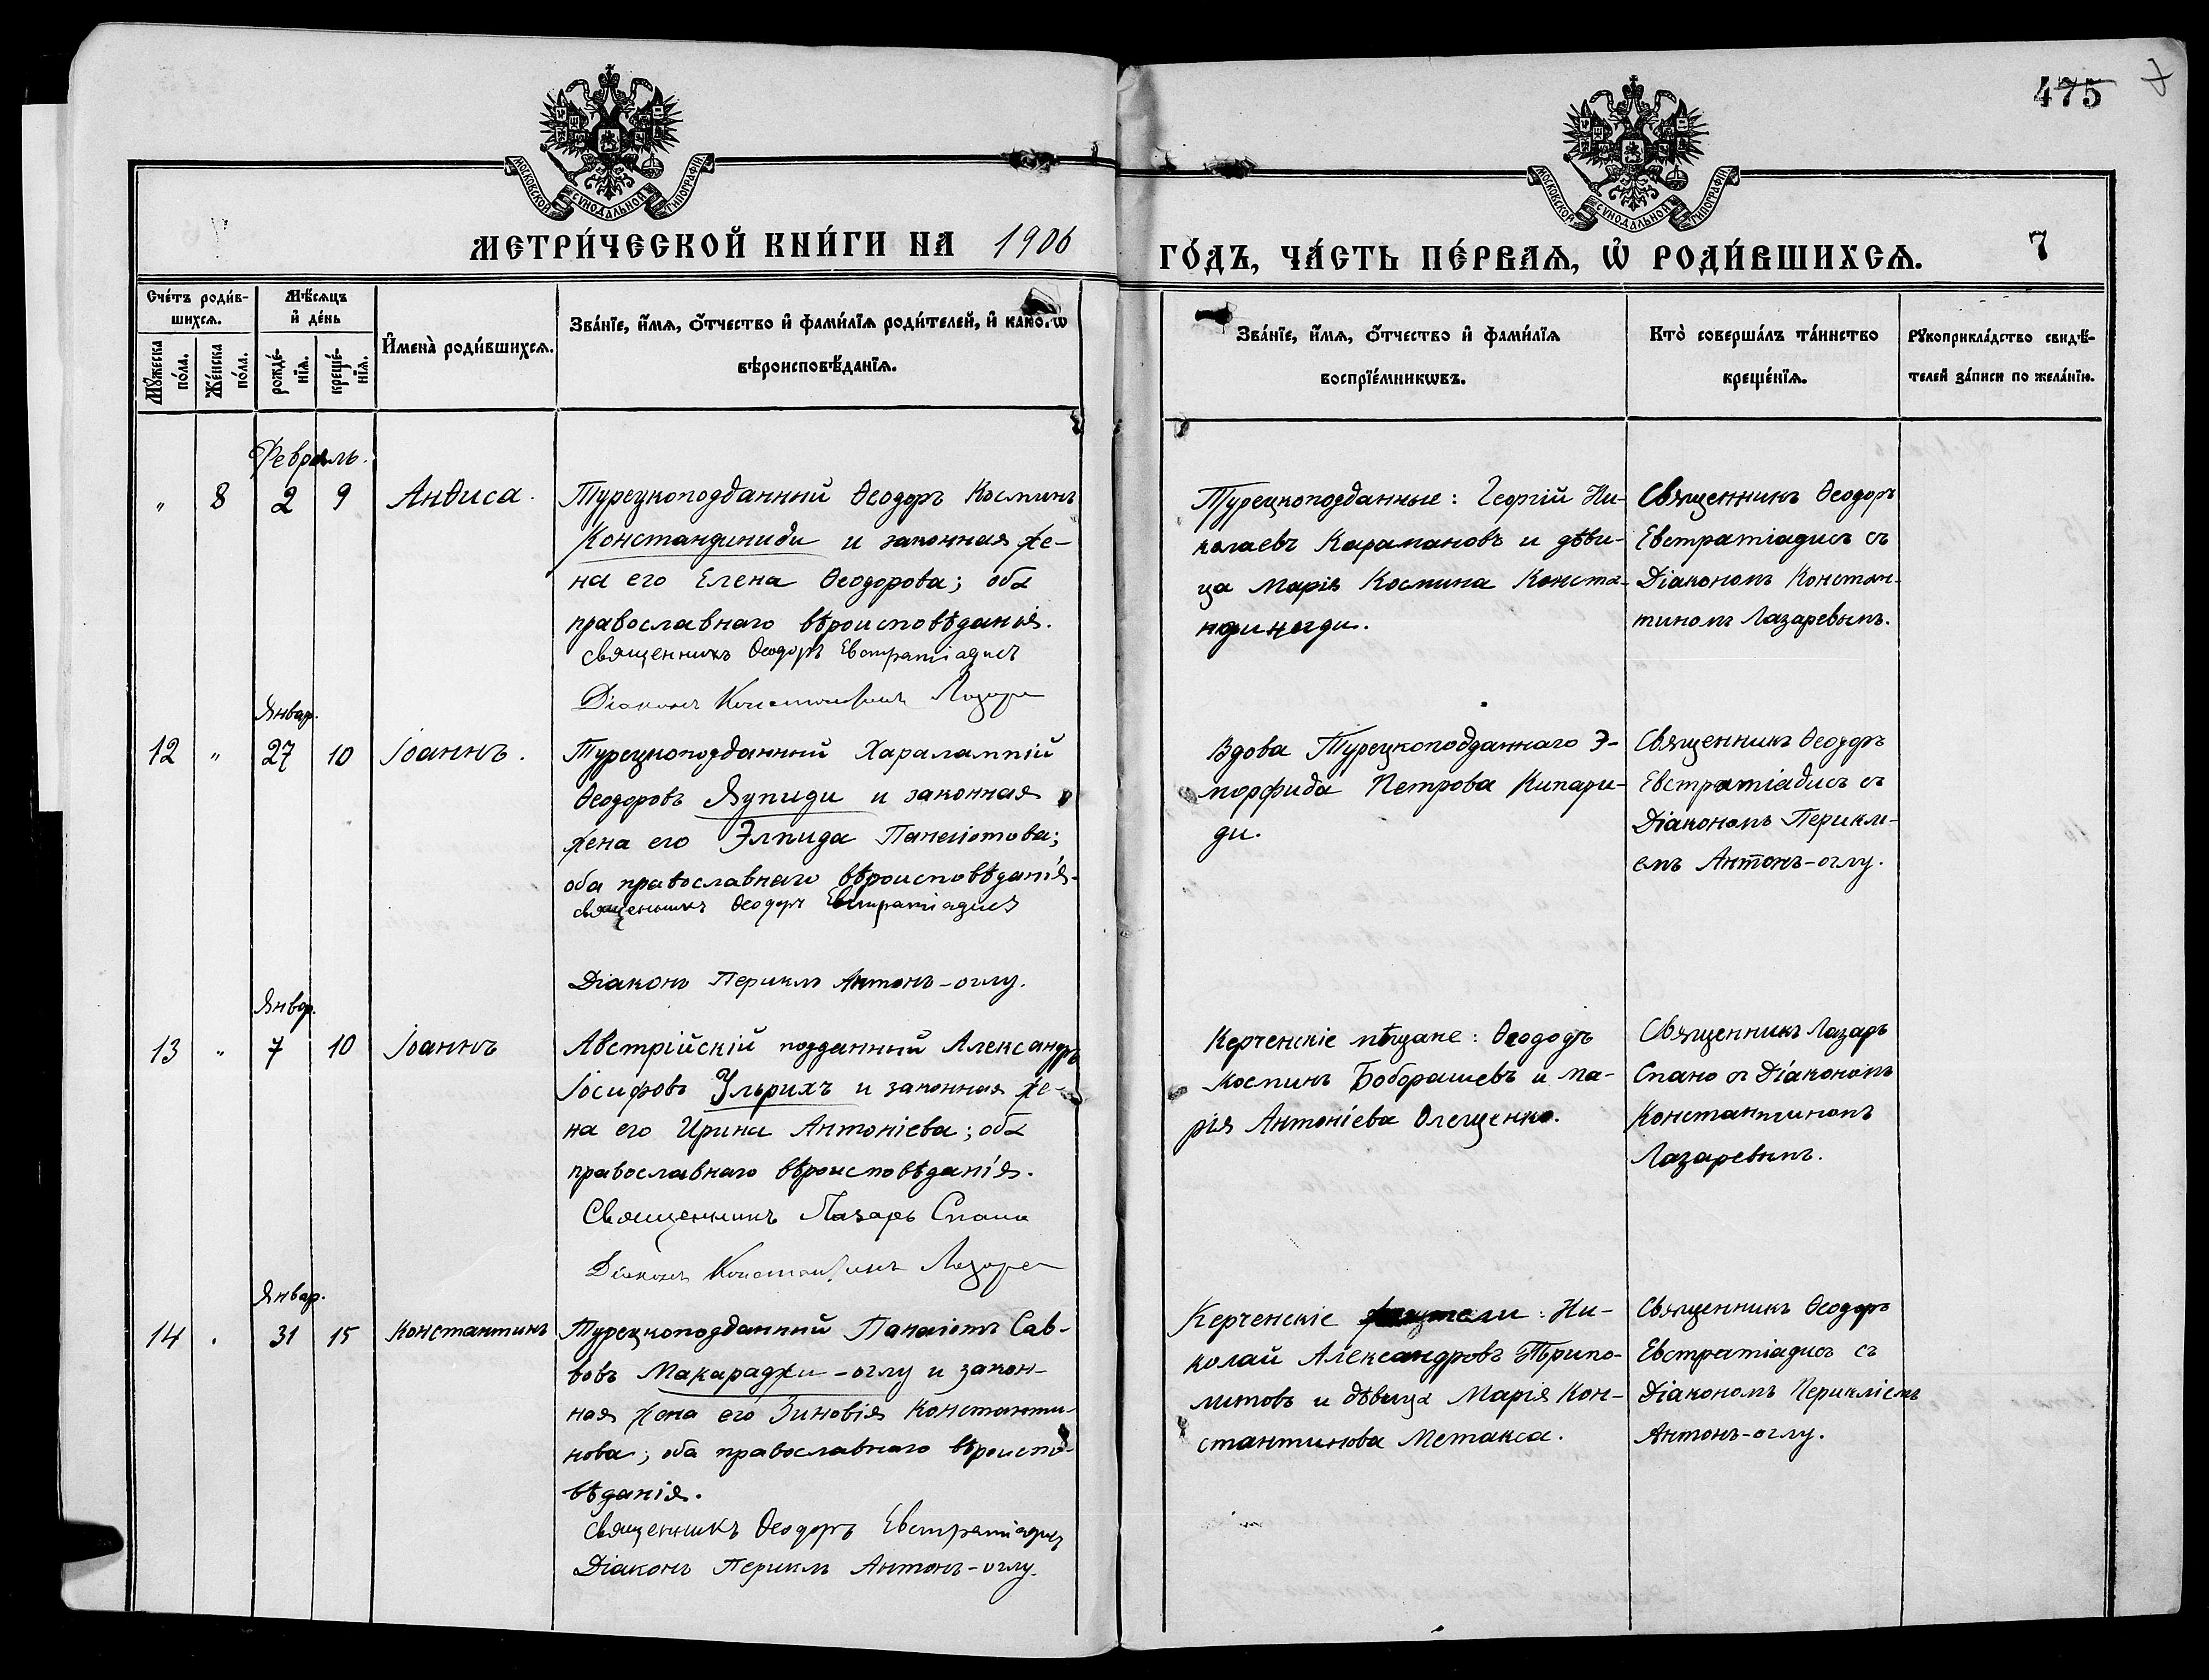 475
МОСКОВСКОЙ СѴНОДАЛЬНОЙ ТИПОГРАФІИ
МОСКОВСКОЙ СѴНОДАЛЬНОЙ ТИПОГРАФІИ
МЕТРИ́ЧЕСКОЙ КНИ́ГИ НА 1906
ГО́ДЪ, ЧА́СТЬ ПЕ́РВАѦ, Ѡ҆ РОДИ́ВШИХСѦ.
7
Сче́тъ роди́в-
шихсѧ.
Мѣ́сѧцъ
и҆ де́нь
Мꙋ́жеска
по́ла.
Же́нска
по́ла.
рожде́-
нїѧ.
креще́-
нїѧ.
И҆мена̀ роди́вшихсѧ.
Зва́нїе, и҆́мѧ, ѻ҆́тчество и҆ фами́лїѧ роди́телей, и҆ како́гѡ
вѣроисповѣ́данїѧ.
Зва́нїе, и҆́мѧ, ѻ҆́тчество и҆ фами́лїѧ
воспрїе́мникѡвъ.
Кто̀ соверша́лъ та́инство
креще́нїѧ.
Рꙋкоприкла́дство свидѣ́-
телей за́писи по жела́нїю.
Февраль.
" 8 2 9 Анѳиса.
Турецкоподданный Ѳеодоръ Косминъ
Константиниди и законная же-
на его Елена Ѳеодорова; оба
православнаго вѣроисповѣданія.
Священникъ Ѳеодоръ Евстратіадисъ
Діаконъ Константинъ Лазаре
Турецкоподданные: Георгій Ни-
колаевъ Карамановъ и дѣви-
ца Марія Космина Конста-
нтиниди.
Священникъ Ѳеодоръ
Евстратіадисъ съ
Діакономъ Констан-
тиномъ Лазаревымъ.
Январ.
12 " 27 10 Іоаннъ.
Турецкоподданный Харалампій
Ѳеодоровъ Яупиди и законная
жена его Элпида Панаіотова;
оба православнаго вѣроисповѣданія.
Священникъ Ѳеодоръ Евстратіадисъ
Діаконъ Периклъ Антонъ-оглу.
Вдова Турецкоподданнаго Э-
морфида Петрова Кипари-
ди.
Священникъ Ѳеодоръ
Евстратіадисъ съ
Діакономъ Перикл-
емъ Антонъ-оглу.
Январ.
13 " 7 10 Іоаннъ
Австрійскій подданный Александръ
Іосифовъ Ульрихъ и законная же-
на его Ирина Антоніева; оба
православнаго вѣроисповѣданія.
Священникъ Лазарь Спано
Діаконъ Константинъ Лазаре
Керченскіе мѣщане: Ѳеодоръ
Косминъ Боборашевъ и Ма-
рія Антоніева Олещенко.
Священникъ Лазаръ
Спано съ Діакономъ
Константиномъ
Лазаревымъ.
Январ.
14 . 31 15 Константинъ
Турецкоподданный Панаіотъ Сав-
вовъ Макараджи-оглу и закон-
ная жена его Зиновія Константи-
нова; оба православнаго вѣроиспо-
вѣданія.
Священникъ Ѳеодоръ Евстратіадисъ
Діаконъ Периклъ Антонъ-оглу.
Керченскіе : Ни-
колай Александровъ Трипо-
литовъ и дѣвица Марія Кон-
стантинова Метакса.
Священникъ Ѳеодоръ
Евстратіадисъ съ
Діакономъ Перикліемъ
Антонъ-оглу.